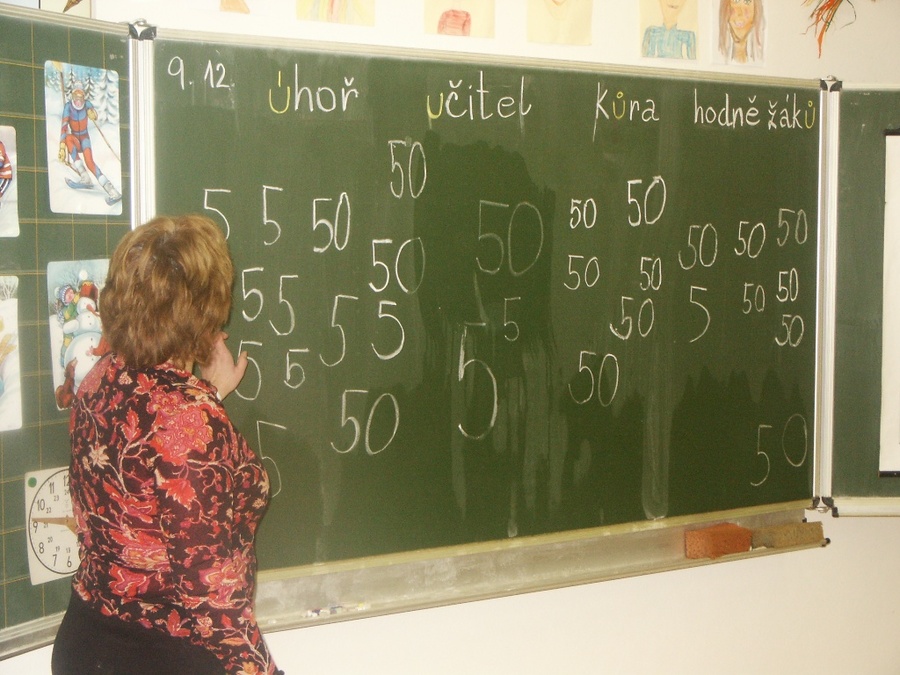 9. 12. úhoř učitel kůra hodně žáků
50
5 5 50 50 50 50
50 50 50 50
5 5 50 50 50 5 50 50
5 5 5 50 50
5 5 5 50
50 50
5
12
11 1
10
9
8
7 6